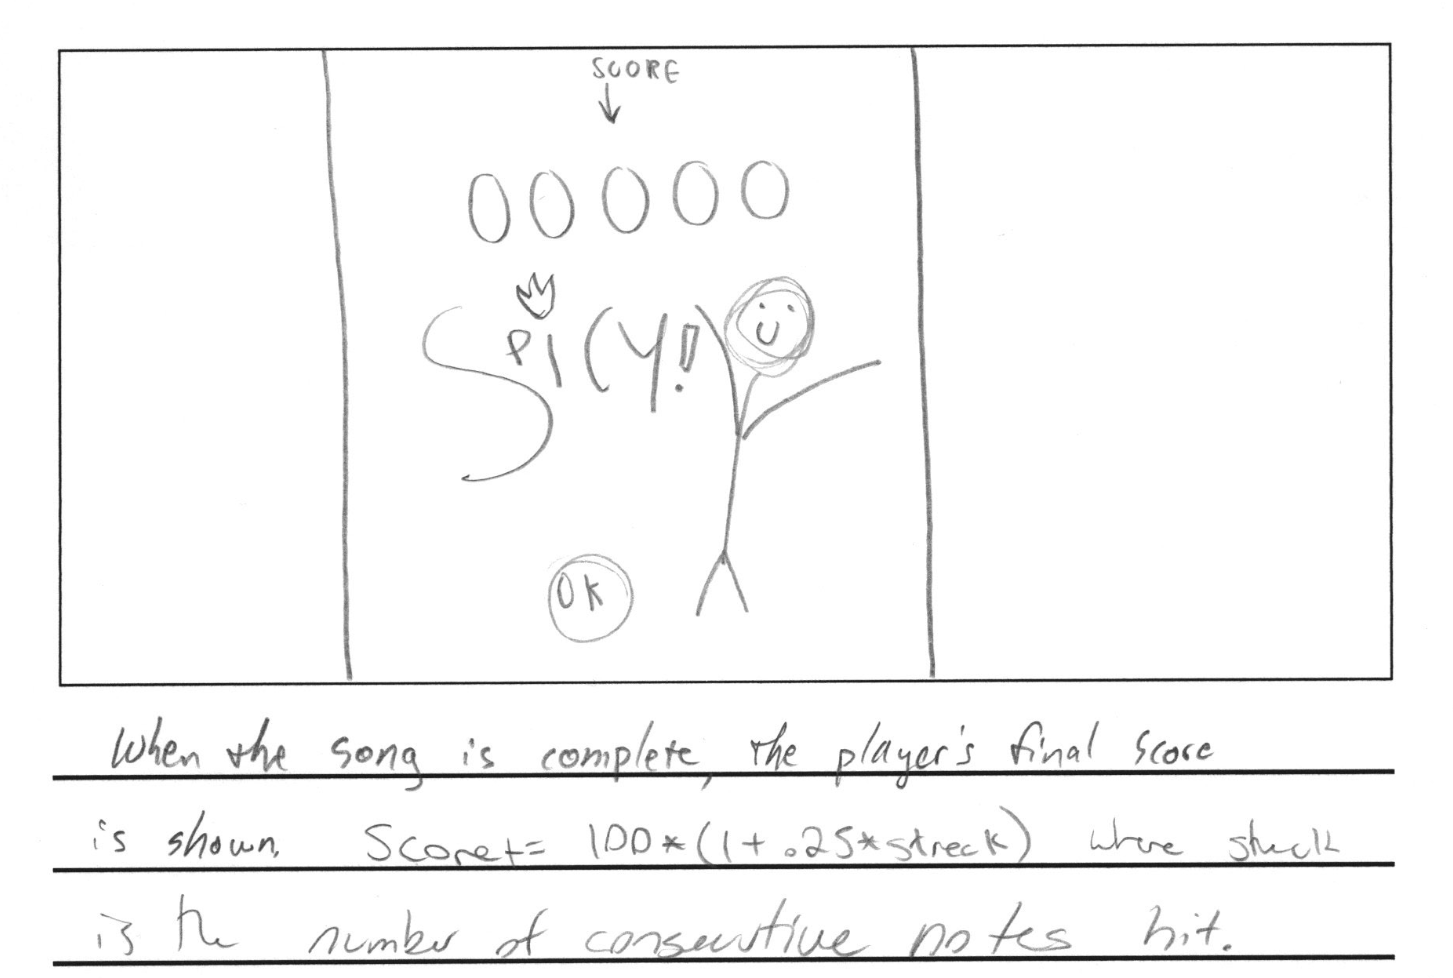 SCORE
00000
SPICY!
OK
When the song is complete, the player's final score
is shown. Score += 100*(1+.25*streak) where streak
is the number of consecutive notes hit.